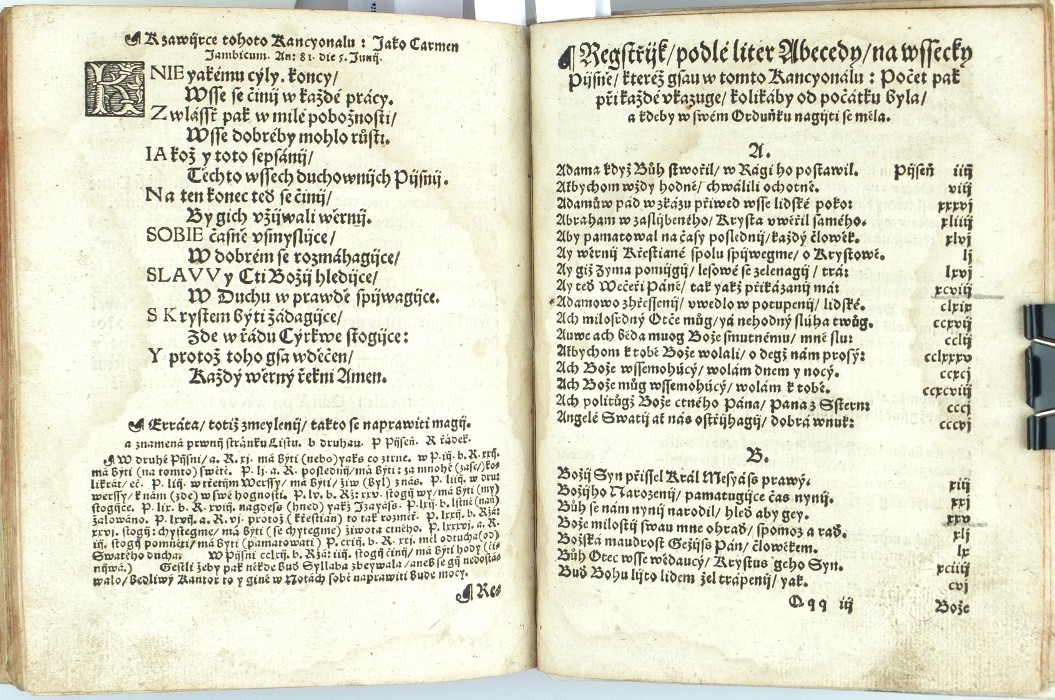 ¶ K zawijrce tohoto Kancyonalu : Jako Carmen
Jambicum. An: 81. die 5. Junij.
KNIE yakému cýly, koncy/
Wsse se činij w každé prácy.
Zwlásst pak w milé pobožnosti/
Wsse dobréby mohlo růsti.
IAkož y toto sepsánij/
Těchto wssech duchownijch Pijsnij.
Na ten konec teď se činij/
By gich vžijwali wěrnij.
SOBIE časně vsmyslijce/
W dobrém se rozmáhagijce/
SLAVV y Cti Božij hledijce/
W Duchu w prawdě spijwagijce.
S Krystem býti žádagijce/
Zde w řádu Cýrkwe stogijce:
Y protož toho gsa wděčen/
Každý wěrný řekni Amen.
¶ Erráta/ totiž zmeylenij/ takto se naprawiti magij.
a znamená prwnij stránku Listu. b druhau. P Pijseň. R řádek.
¶ W druhé Pijsni/ a. R. xj. má býti (nebo) yaks co ztrne. w P. iij. b. R. xxij.
má býti (na tomto) swětě. P. lj. a. R. poslednij/ má býti: za mnohé (zase) ko-
likrát/ ec. P. liij. w třetijm Werssy/ má býti/ žiw (byl) z nás. P. liiij. w druh
werssy/ k nám (zde) w swé hognosti. P. lv. b. Rž: xxv. stogij wy/ má býti (my)
stogijce. P. lix. b. R. xviij. nagdeso (hned) yakž Izayáss. P. lxij. b. lstně (naň)
žalowáno. P. lxvij. a. R. vj. protož (křestian) to tak rozměř. P. lxxij. b. Rža:
xxvj. stogij: chystegme/ má býti (se chytegme) žiwota ctného. P. lxxxvj. a. R.
iij. stogij pomněti/ má býti (pamatowati) P. cxij. b. R. xxj. měl odtucha (od)
Swatého ducha. W Pijsni cclxij. b. Rža: iiij. stogij činij/ má býti hody (či-
nijwá.) Gestli žeby pak někde buď Syllaba zbeywala/ aneb se gij nedostá-
walo/ bedliwý Kantor to y giné w Notách sobě naprawiti bude mocy.
¶ Reg
¶ Regstřijk/ podlé liter Abecedy/ na wssecky
Pijsně/ kteréž gsau w tomto Kancyonálu : Počet pak
při každé vkazuge/ kolikáby od počátku byla/
a kdeby w swém Orduňku nagijti se měla.
A.
Adama když Bůh stwořil/ w Rági ho postawil. Pijseň iiij
Abychom wždy hodně/ chwálili ochotně. viij
Adamůw pád w zkázu přiwed wsse lidské poko: xxxvj
Abraham w zaslijbeného/ Krysta vwěřil samého. xliiij
Aby pamatowal na časy poslednij/ každý člowěk. xlvj
Ay wěrnij Křestiané spolu spijwegme/ o Krystowě. lj
Ay giž zyma pomijgij/ lesowé se zelenagij/ trá: lxvj
Ay teď Wečeři Páně/ tak yakž přikázanij má: xcviij
Adamowo zhřessenij/ vwedlo w potupenij/ lidské. clxix
Ach milosrdný Otče můg/ yá nehodný slúha twůg. ccxvij
Auwe ach běda muog Bože smutnému/ mně slu: cclij
Abychom k tobě Bože wolali/ o degž nám prosý: cclxxxv
Ach Bože wssemohúcý/ wolám dnem y nocý. ccxcj
Ach Bože můg wssemohúcý/ wolám k tobě. ccxcviij
Ach politůgž Bože ctného Pána/ Pana z Sstern: cccj
Angelé Swatij ať nás ostřijhagij/ dobrá wnuk: cccvj
B.
Božij Syn přissel Král Mesyáss prawý. xiij
Božijho Narozenij/ pamatugijce čas nynij. xxj
Bůh se nám nynij narodil/ hleď aby gey. xxv
Bože milostij swau mne ohraď/ spomoz a raď. xlj
Božská maudrost Gežijss Pán/ člowěkem. lx
Bůh Otec wsse wědaucý/ Krystus geho Syn. xciiij
Buď Bohu lijto lidem žel trápenij/ yak. cvj
Qqq iij Bože